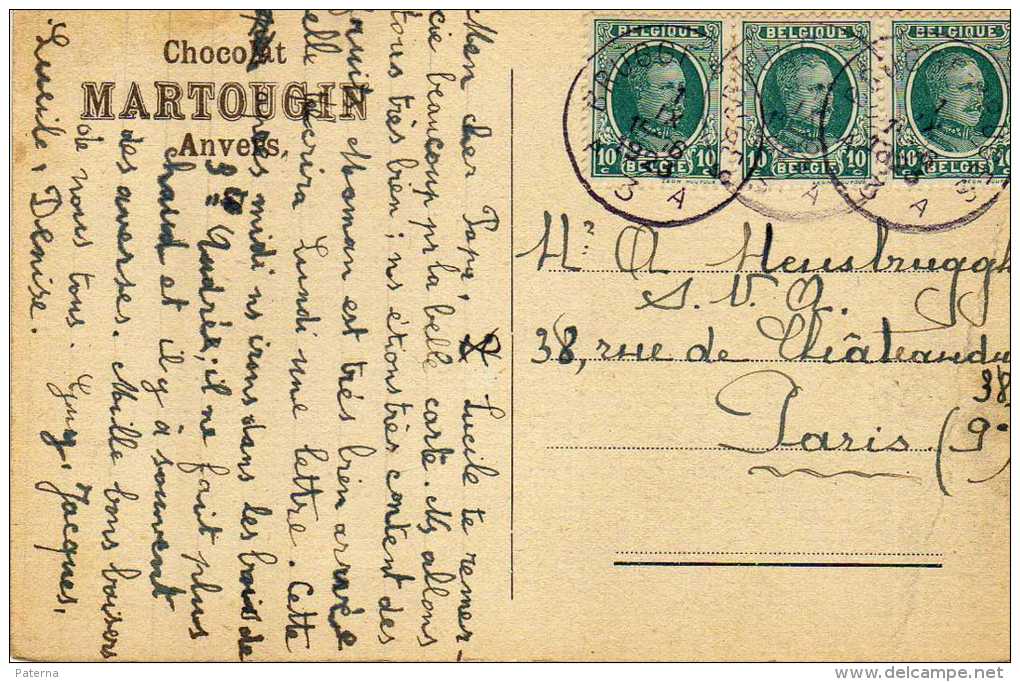 Chocolat
MARTOUGIN
Anvers.
Mon cher Papa, Lucile te remer-
cie beaucoup pr la belle carte. Ns allons
tous très bien; ns étions très content des
fruits. Maman est très bien arrivée
elle t'écrira Lundi une lettre. Cette
après midi ns irons dans les bois de
Gudrée, il ne fait plus
chaud et il y a souvent
des averses. Mille bons baisers
de nous tous. Guy, Jacques,
Lucile, Denise.
BELGIQUE
BELGIQUE
BELGIQUE
10 BELGIE 10
10 BELGIE 10
10 BELGIE 10
3 A
Mr A Mensbruggh
S. V. A.
38, rue de Châteaudu
38
Paris (9e
Paterna
delcampe.net